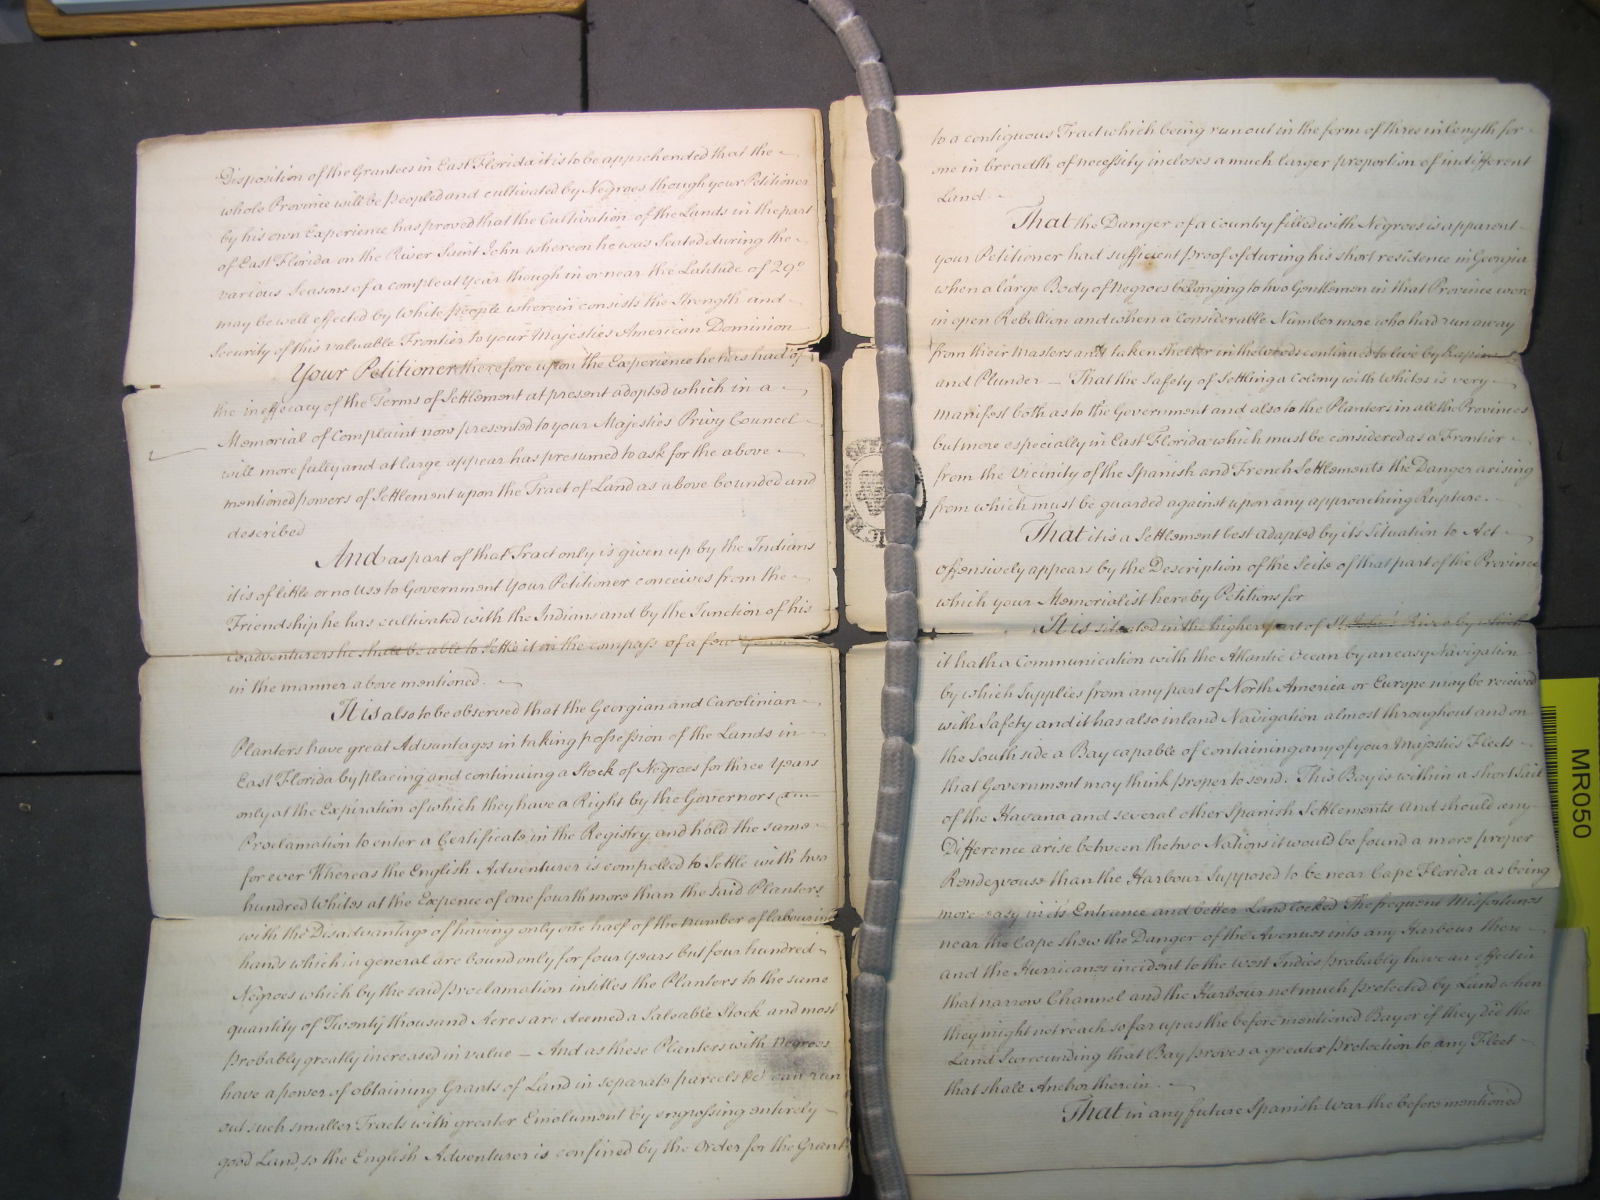 Disposition of the Grantees in East Florida it is to be apprehended that the
whole Province will be peopled and cultivated by Negroes though your Petitioner
by his own Experience has proved that the Cultivation of the Lands in the part
of East Florida on the River Saint John whereon he was Seated during the
various Seasons of a compleat Year though in or near the Latitude of 29°
may be well effected by white people wherein consists the Strength and
Security of this valuable Frontier to your Majesties American Dominion
Your Petitioner therefore upon the Experience he has had of
the inefficacy of the Terms of Settlement at present adopted which in a
Memorial of Complaint now presented to your Majesties Privy Council
will more fully and at large appear has presumed to ask for the above
mentioned powers of Settlement upon the Tract of Land as above bounded and
described
And as part of that Tract only is given up by the Indians
it is of little or no Use to Government Your Petitioner conceives from the
Friendship he has cultivated with the Indians and by the Junction of his
Coadventurers he shall be able to Settle it in the compass of a few
in the manner above mentioned.
It is also to be observed that the Georgian and Carolinian
Planters have great Advantages in taking possession of the Lands in
East Florida by placing and continuing a Stock of Negroes for three Years
only at the Expiration of which they have a Right by the Governors
Proclamation to enter a Certificate in the Registry and hold the same
for ever Whereas the English Adventurer is compelled to Settle with two
hundred Whites at the Expence of one fourth more than the said Planters
with the Disadvantage of having only one half of the number of labouring
hands which in general are bound only for four Years but four hundred
Negroes which by the said proclamation intitles the Planters to the same
quantity of Twenty thousand Acres are deemed a Saleable Stock and most
probably greatly increased in value - And as these Planters with Negroes
have a power of obtaining Grants of Land in separate parcels &c can run
out such smaller Tracts with greater Emolument by engrossing entirely
good Land, so the English Adventurer is confined by the Order for the Grant
to a contiguous Tract which being run out in the form of three in length for
one in breadth of necessity incloses a much larger proportion of indifferent
Land
That the Danger of a Country filled with Negroes is apparent
your Petitioner had sufficient proof of during his short residence in Georgia
when a large Body of Negroes belonging to two Gentlemen in that Province were
in open Rebellion and when a Considerable Number more who had run away
from their Masters and taken Shelter in the Woods continued to live by Rapine
and Plunder - That the Safety of Settling a Colony with Whites is very
manifest both as to the Government and also to the Planters in all the Provinces
but more especially in East Florida which must be considered as a Frontier
from the Vicinity of the Spanish and French Settlements the Danger arising
from which must be guarded against upon any approaching Rupture.
That it is a Settlement best adapted by its Situation to Act
offensively appears by the Description of the Scite of that part of the Province
which your Memorialist hereby Petitions for
It is situated in the higher part of St. John's River by which
it hath a Communication with the Atlantic Ocean by an easy Navigation
by which Supplies from any part of North America or Europe may be received
with Safety and it has also inland Navigation almost throughout and on
the South side a Bay capable of containing any of your Majesties Fleets
that Government may think proper to send. This Bay is within a short Sail
of the Havana and several other Spanish Settlements And should any
Difference arise between the two Nations it would be found a more proper
Rendezvouse than the Harbour Supposed to be near Cape Florida as being
more easy in its Entrance and better Land locked The frequent Misfortunes
near the Cape shew the Danger of the Avenues into any Harbour there
and the Hurricanes incident to the West Indies probably have an effect in
that narrow Channel and the Harbour not much protected by Land when
they might not reach so far up as the before mentioned Bay or if they did the
Land Surrounding that Bay proves a greater protection to any Fleet
that shall Anchor therein.
That in any future Spanish War the before mentioned
MR050